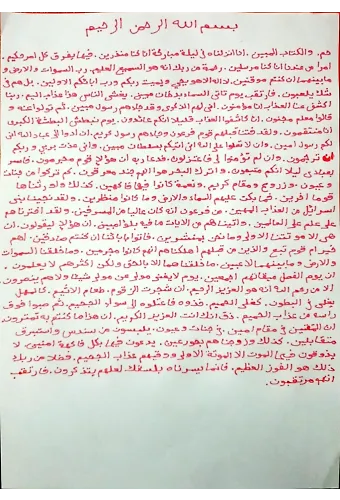 بسم الله الرحمن الرحيم
حم. والكتاب المبين. إنا أنزلناه في ليلة مباركة إنا كنا منذرين. فيها يفرق كل أمر حكيم.
أمرا من عندنا إنا كنا مرسلين. رحمة من ربك إنه هو السميع العليم. رب السموات والارض و
مابينهما إن كنتم موقنين. لا اله الا هو يحي ويميت ربكم ورب ابائكم الاولين. بل هم في
شك يلعبون. فارتقب يوم تاتي السماء بدخان مبين. يغشى الناس هذا عذاب اليم. ربنا
اكشف عنا العذاب إنا مؤمنون. أنى لهم الذكرى وقد جاءهم رسول مبين. ثم تولوا عنه و
قالوا معلم مجنون. إنا كاشفوا العذاب قليلا انكم عائدون. يوم نبطش البطشة الكبرى
انا منتقمون. ولقد فتنا قبلهم قوم فرعون وجاءهم رسول كريم. ان ادوا الى عباد الله اني
لكم رسول امين. وان لا تعلوا على الله اني اتيكم بسلطان مبين. واني عذت بربي وربكم
ان ترجمون. وان لم تؤمنوا لي فاعتزلون. فدعا ربه ان هؤلاء قوم مجرمون. فاسر
بعبادي ليلا انكم متبعون. واترك البحر رهوا انهم جند مغرقون. كم تركوا من جنات
وعيون. وزروع ومقام كريم. ونعمة كانوا فيها فاكهين. كذلك واورثناها
قوما اخرين. فما بكت عليهم السماء والارض وما كانوا منظرين. ولقد نجينا بني
اسرائيل من العذاب المهين. من فرعون انه كان عاليا من المسرفين. ولقد اخترناهم
على علم على العالمين. واتيناهم من الايات ما فيه بلاؤا مبين. ان هؤلاء ليقولون. ان
هي الا موتتنا الاولى وما نحن بمنشرين. فاتوا بابائنا ان كنتم صدقين. اهم
خير ام قوم تبع والذين من قبلهم اهلكناهم انهم كانوا مجرمين. وما خلقنا السموات
والارض وما بينهما لاعبين. ما خلقنهما الا بالحق ولكن اكثرهم لا يعلمون.
ان يوم الفصل ميقاتهم اجمعين. يوم لا يغني مولى عن مولى شيئا ولا هم ينصرون.
الا من رحم الله انه هو العزيز الرحيم. ان شجرت الزقوم. طعام الاثيم. كالمهل
يغلي في البطون. كغلي الحميم. خذوه فاعتلوه الى سواء الجحيم. ثم صبوا فوق
راسه من عذاب الحميم. ذق انك انت العزيز الكريم. ان هذا ما كنتم به تمترون.
ان المتقين في مقام امين. في جنات وعيون. يلبسون من سندس واستبرق
متقابلين. كذلك وزوجناهم بحور عين. يدعون فيها بكل فاكهة امنين. لا
يذوقون فيها الموت الا الموتة الاولى ووقيهم عذاب الجحيم. فضلا من ربك
ذلك هو الفوز العظيم. فانما يسرناه بلسانك لعلهم يتذكرون. فارتقب
انهم مرتقبون.